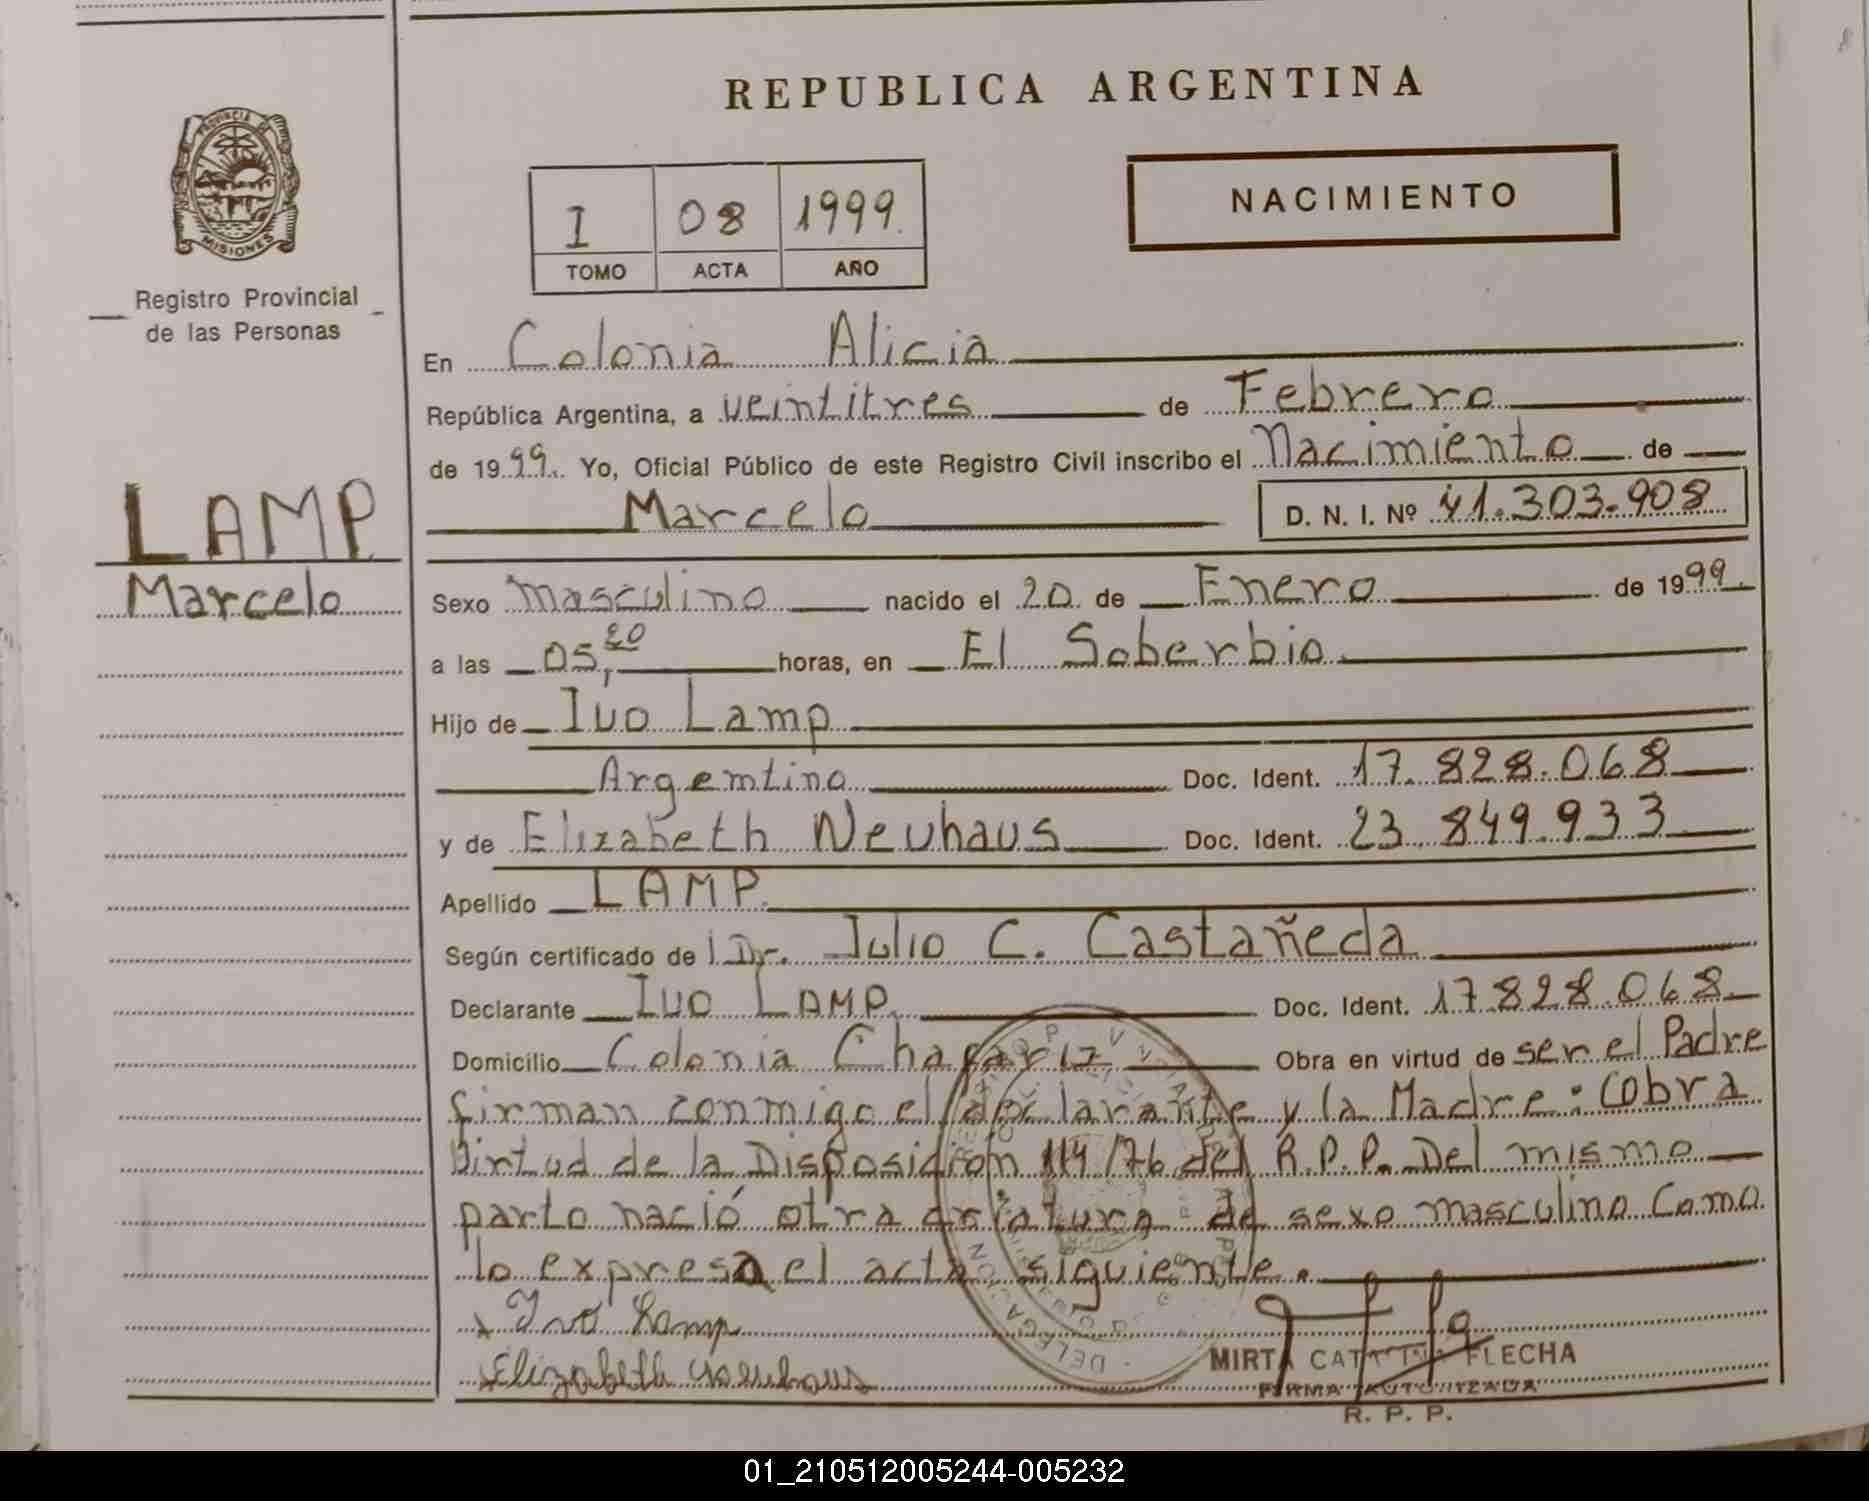 REPUBLICA ARGENTINA
PROVINCIA DE
MISIONES
Registro Provincial
de las Personas
LAMP
Marcelo
NACIMIENTO
I 08 1999
TOMO ACTA AÑO
En Colonia Alicia
República Argentina, a veintitres de Febrero
de 1999. Yo, Oficial Público de este Registro Civil inscribo el Nacimiento de
Marcelo D. N. I. Nº 41.303.908
Sexo masculino nacido el 20 de Enero de 1999.
a las 05,20 horas, en El Soberbio
Hijo de Ivo Lamp
Argentino Doc. Ident. 17.828.068
y de Elizabeth Neuhaus Doc. Ident. 23.849.933
Apellido LAMP
Según certificado de Dr. Julio C. Castañeda
Declarante Ivo LAMP. Doc. Ident. 17828.068
Domicilio Colonia Chafariz Obra en virtud de ser el Padre
firman conmigo el declarante y la Madre: Cobra
Virtud de la Disposición 114/76 del R.P.P. Del mismo
parto nació otra criatura de sexo masculino Como
lo expresa el acta siguiente.
x Ivo Lamp
Elizabeth Neuhaus
MIRTA FLECHA
FIRMA AUTORIZADA
R. P. P.
01_210512005244-005232